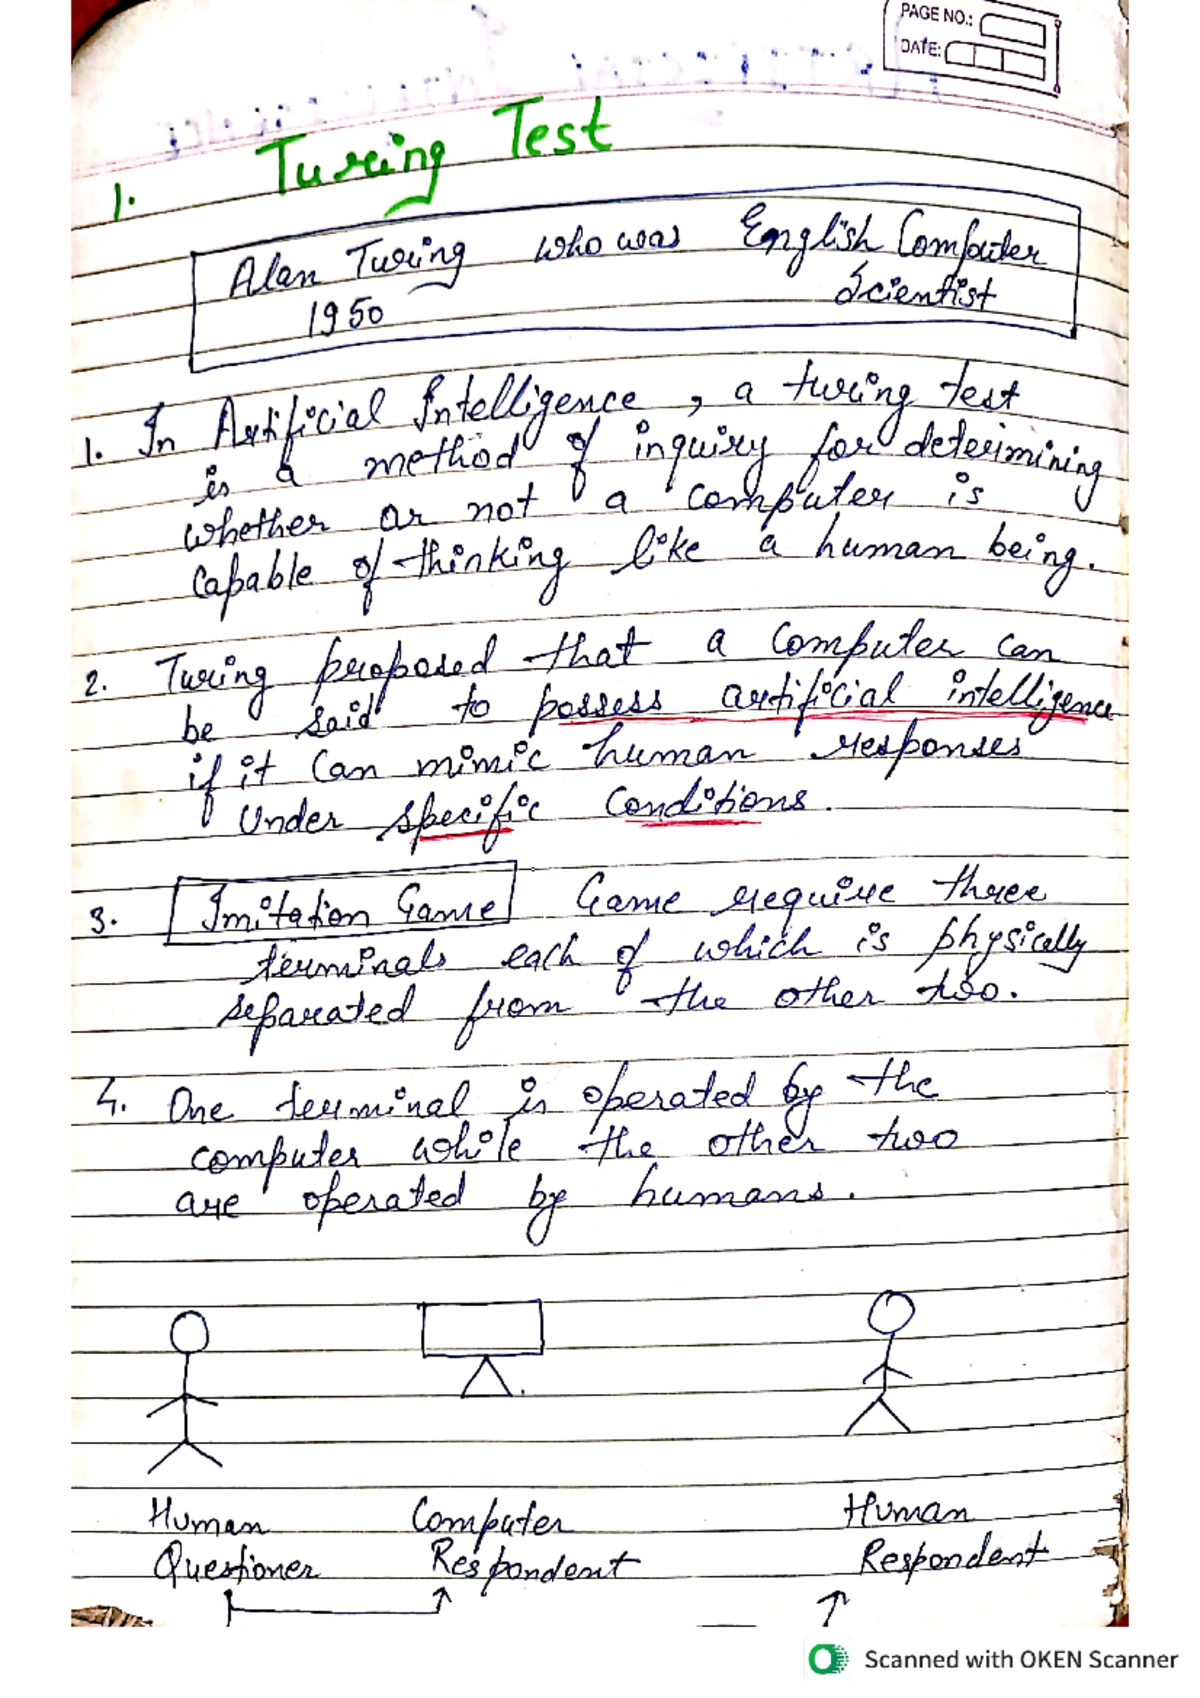 PAGE NO.:
DATE:
1. Turing Test
Alan Turing who was English Computer
1950 Scientist
1. In Artificial Intelligence, a turing test
is a method of inquiry for determining
whether or not a computer is
capable of thinking like a human being.
2. Turing proposed that a computer can
be said to possess artificial intelligence
if it can mimic human responses
under specific conditions.
3. Imitation Game Game require three
terminals each of which is physically
separated from the other two.
4. One terminal is operated by the
computer while the other two
are operated by humans.
Human Computer Human
Questioner Respondent Respondent
Scanned with OKEN Scanner